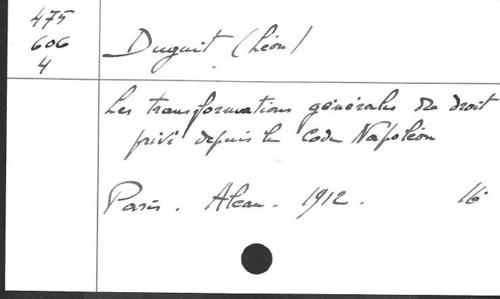 475
606
4
Duguit (Léon)
Les transformations générales du droit
privé depuis le Code Napoléon
Paris. Alcan. 1912. 16°